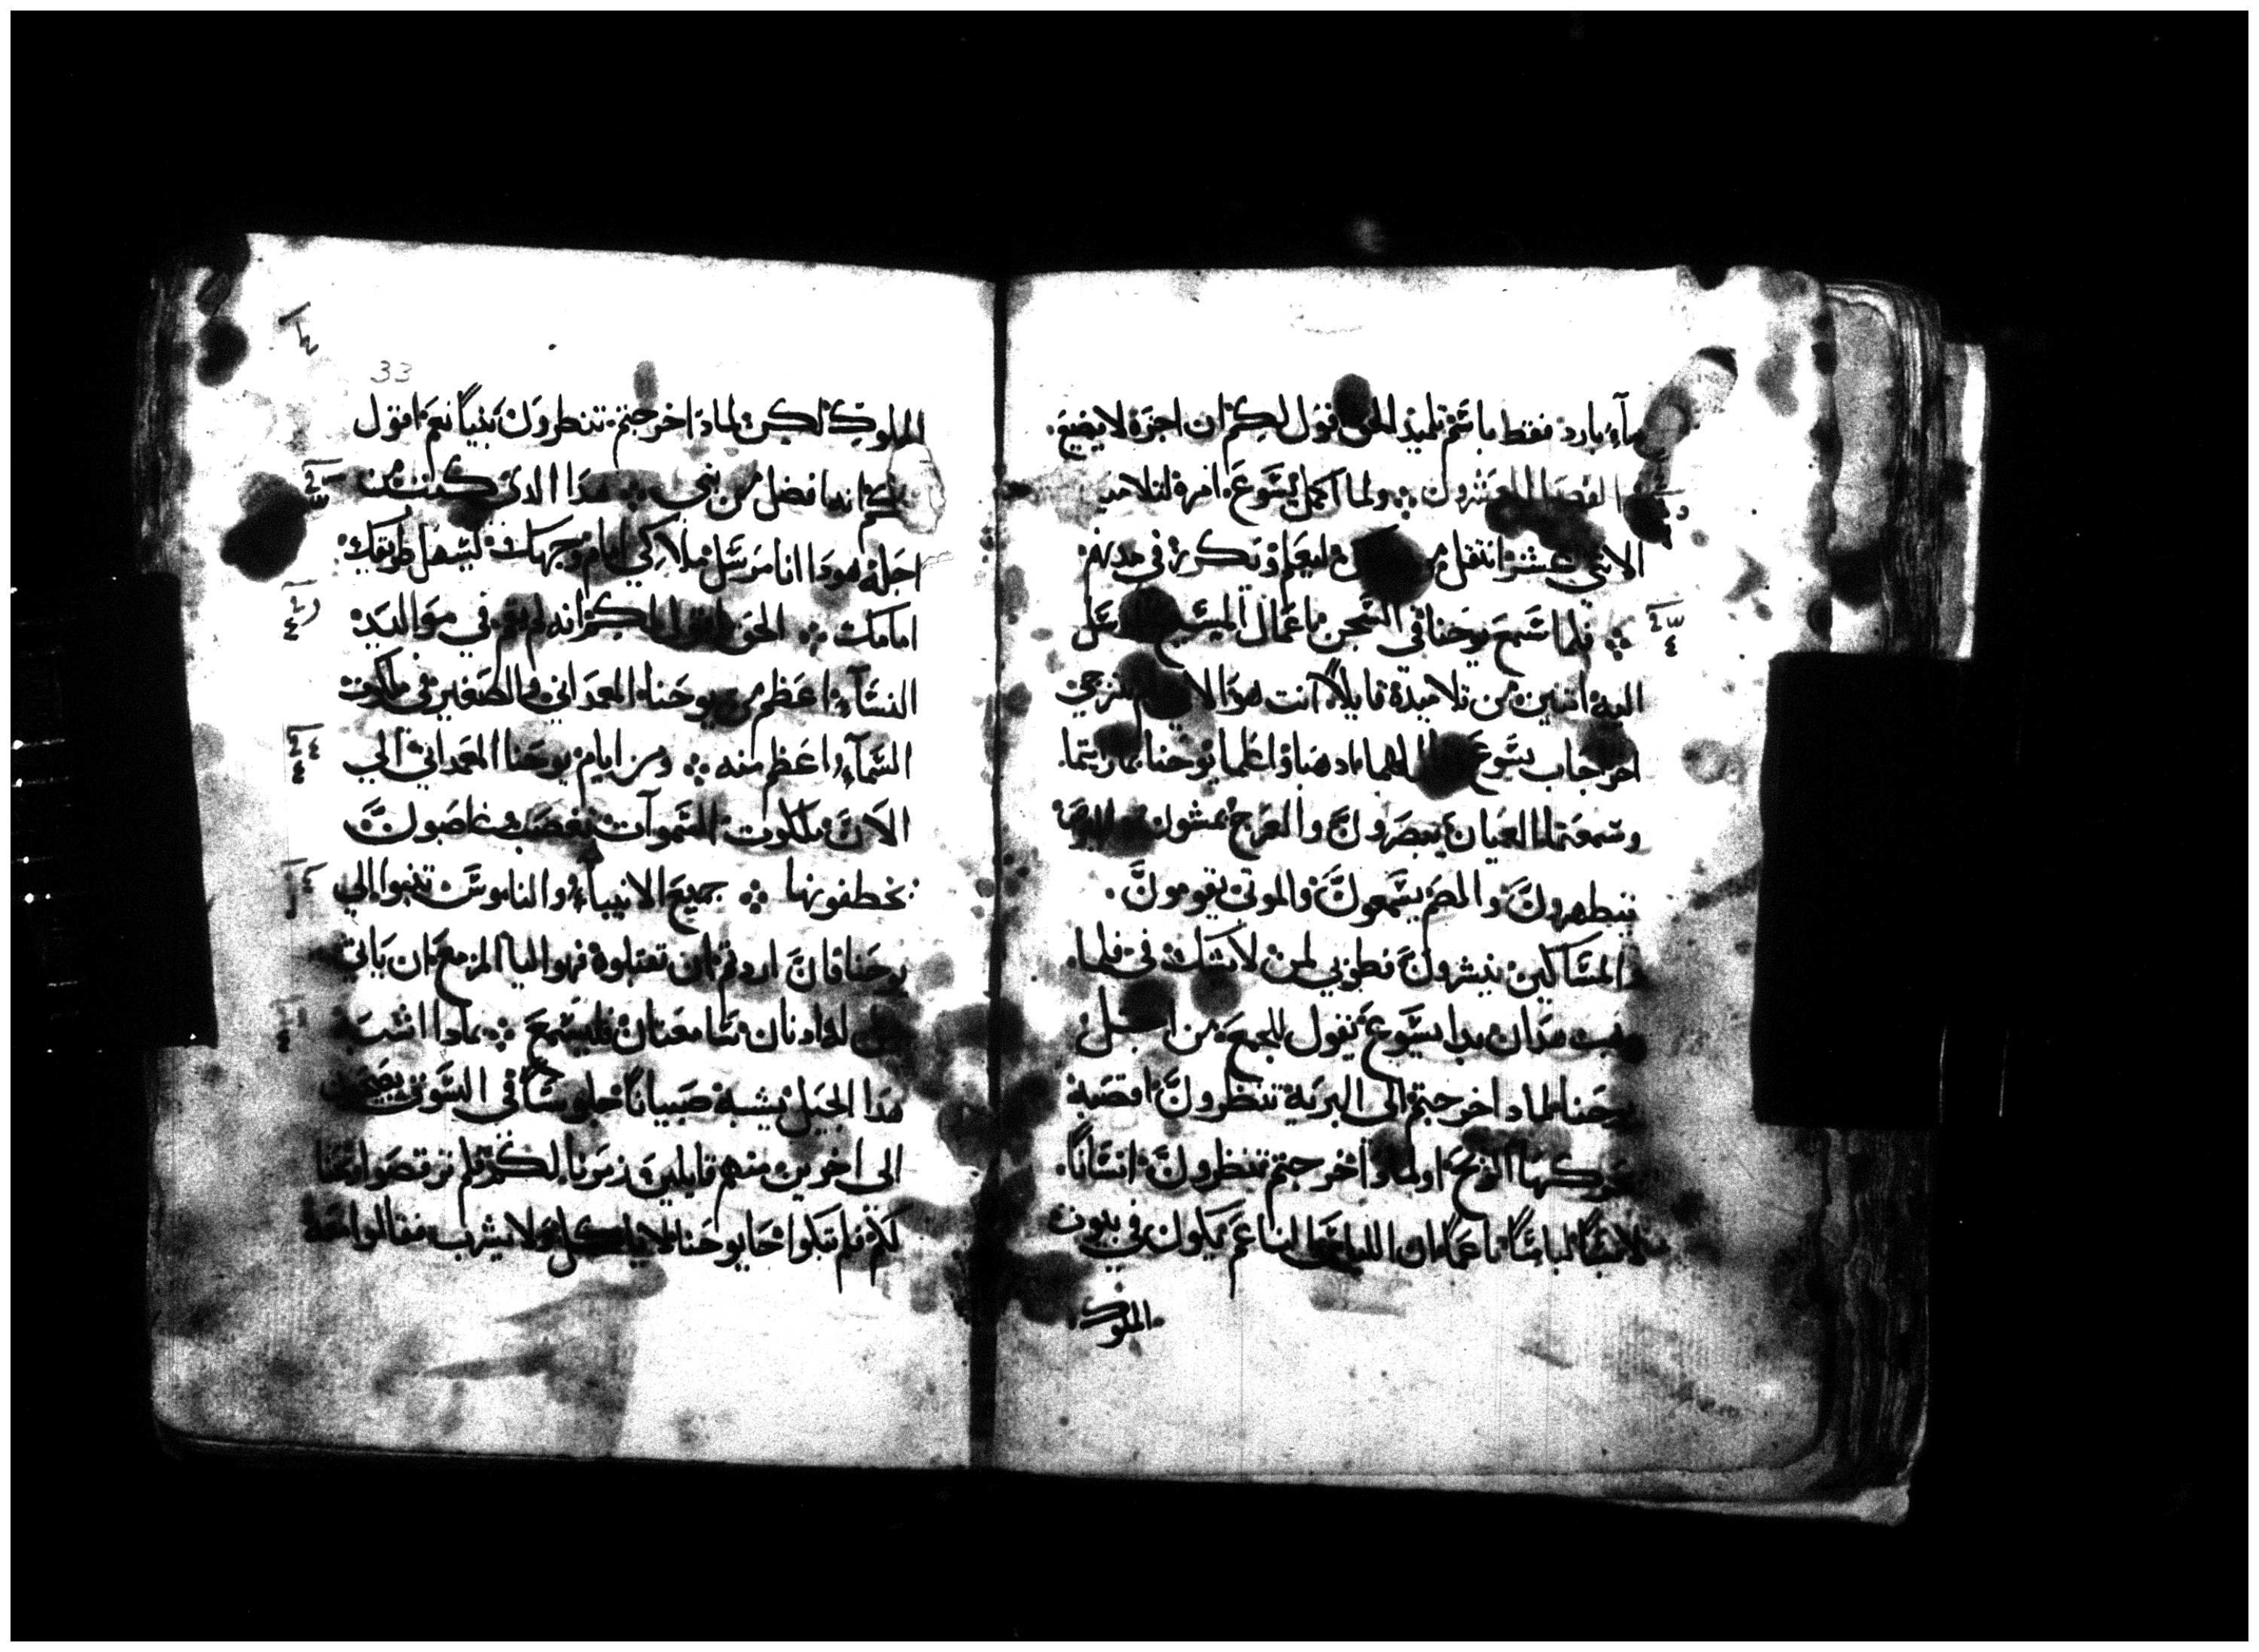 مآء بارد فقط باسم تلميذ الحق اقول لكم ان اجره لا يضيع.
الفصل العشرون ولما اكمل يسوع امره لتلاميذ
الاثني عشر انتقل من ليعلم ويكرز في مدنهم
فلما سمع يوحنا في السجن باعمال المسيح ارسل
اليه اثنين من تلاميذه قايلا انت هو الا نترجي
اخر اجاب يسوع لهما ادهبا واعلما يوحنا بما رايتما.
وسمعتما العميان يبصرون والعرج يمشون والبرص
يتطهرون والصم يسمعون والموتى يقومون.
والمساكين يبشرون فطوبي لمن لا يشك في فلما.
دهب هدان بدا يسوع يقول للجمع من اجل
يوحنا لمادا خرجتم الى البرية تنظرون اقصبة
تحركها الريح او لمادا خرجتم تنظرون انسانا.
لابسا لباسا ناعما ان اللباس الناعم يكون في بيوت
الملوك.
33
الملوك لكن لماذا خرجتم تنظرون نبيا نعم اقول
لكم انه افضل من نبي هدا الدى كتب من
اجله هودا انا مرسل ملاكي امام وجهك ليسهل طريقك
امامك الحق اقول لكم انه لم يقم في مواليد
النسآء اعظم من يوحنا المعمداني والصغير في ملكوت
السمآء اعظم منه ومن ايام يوحنا المعمداني الي
الان ملكوت السموآت تغصب وغاصبون
يخطفونها جميع الانبياء والناموس تنبوا الي
يوحنا فان اردتم ان تقبلوه فهو اليا المزمع ان ياتي
من له ادنان سامعتان فليسمع بمادا اشبه
هدا الجيل يشبه صبيانا جلوسا في السوق يصيحون
الى اخرين منهم قايلين زمرنا لكم فلم ترقصوا ونحنا
لكم فلم تبكوا جا يوحنا لا ياكل ولا يشرب فقالوا معه